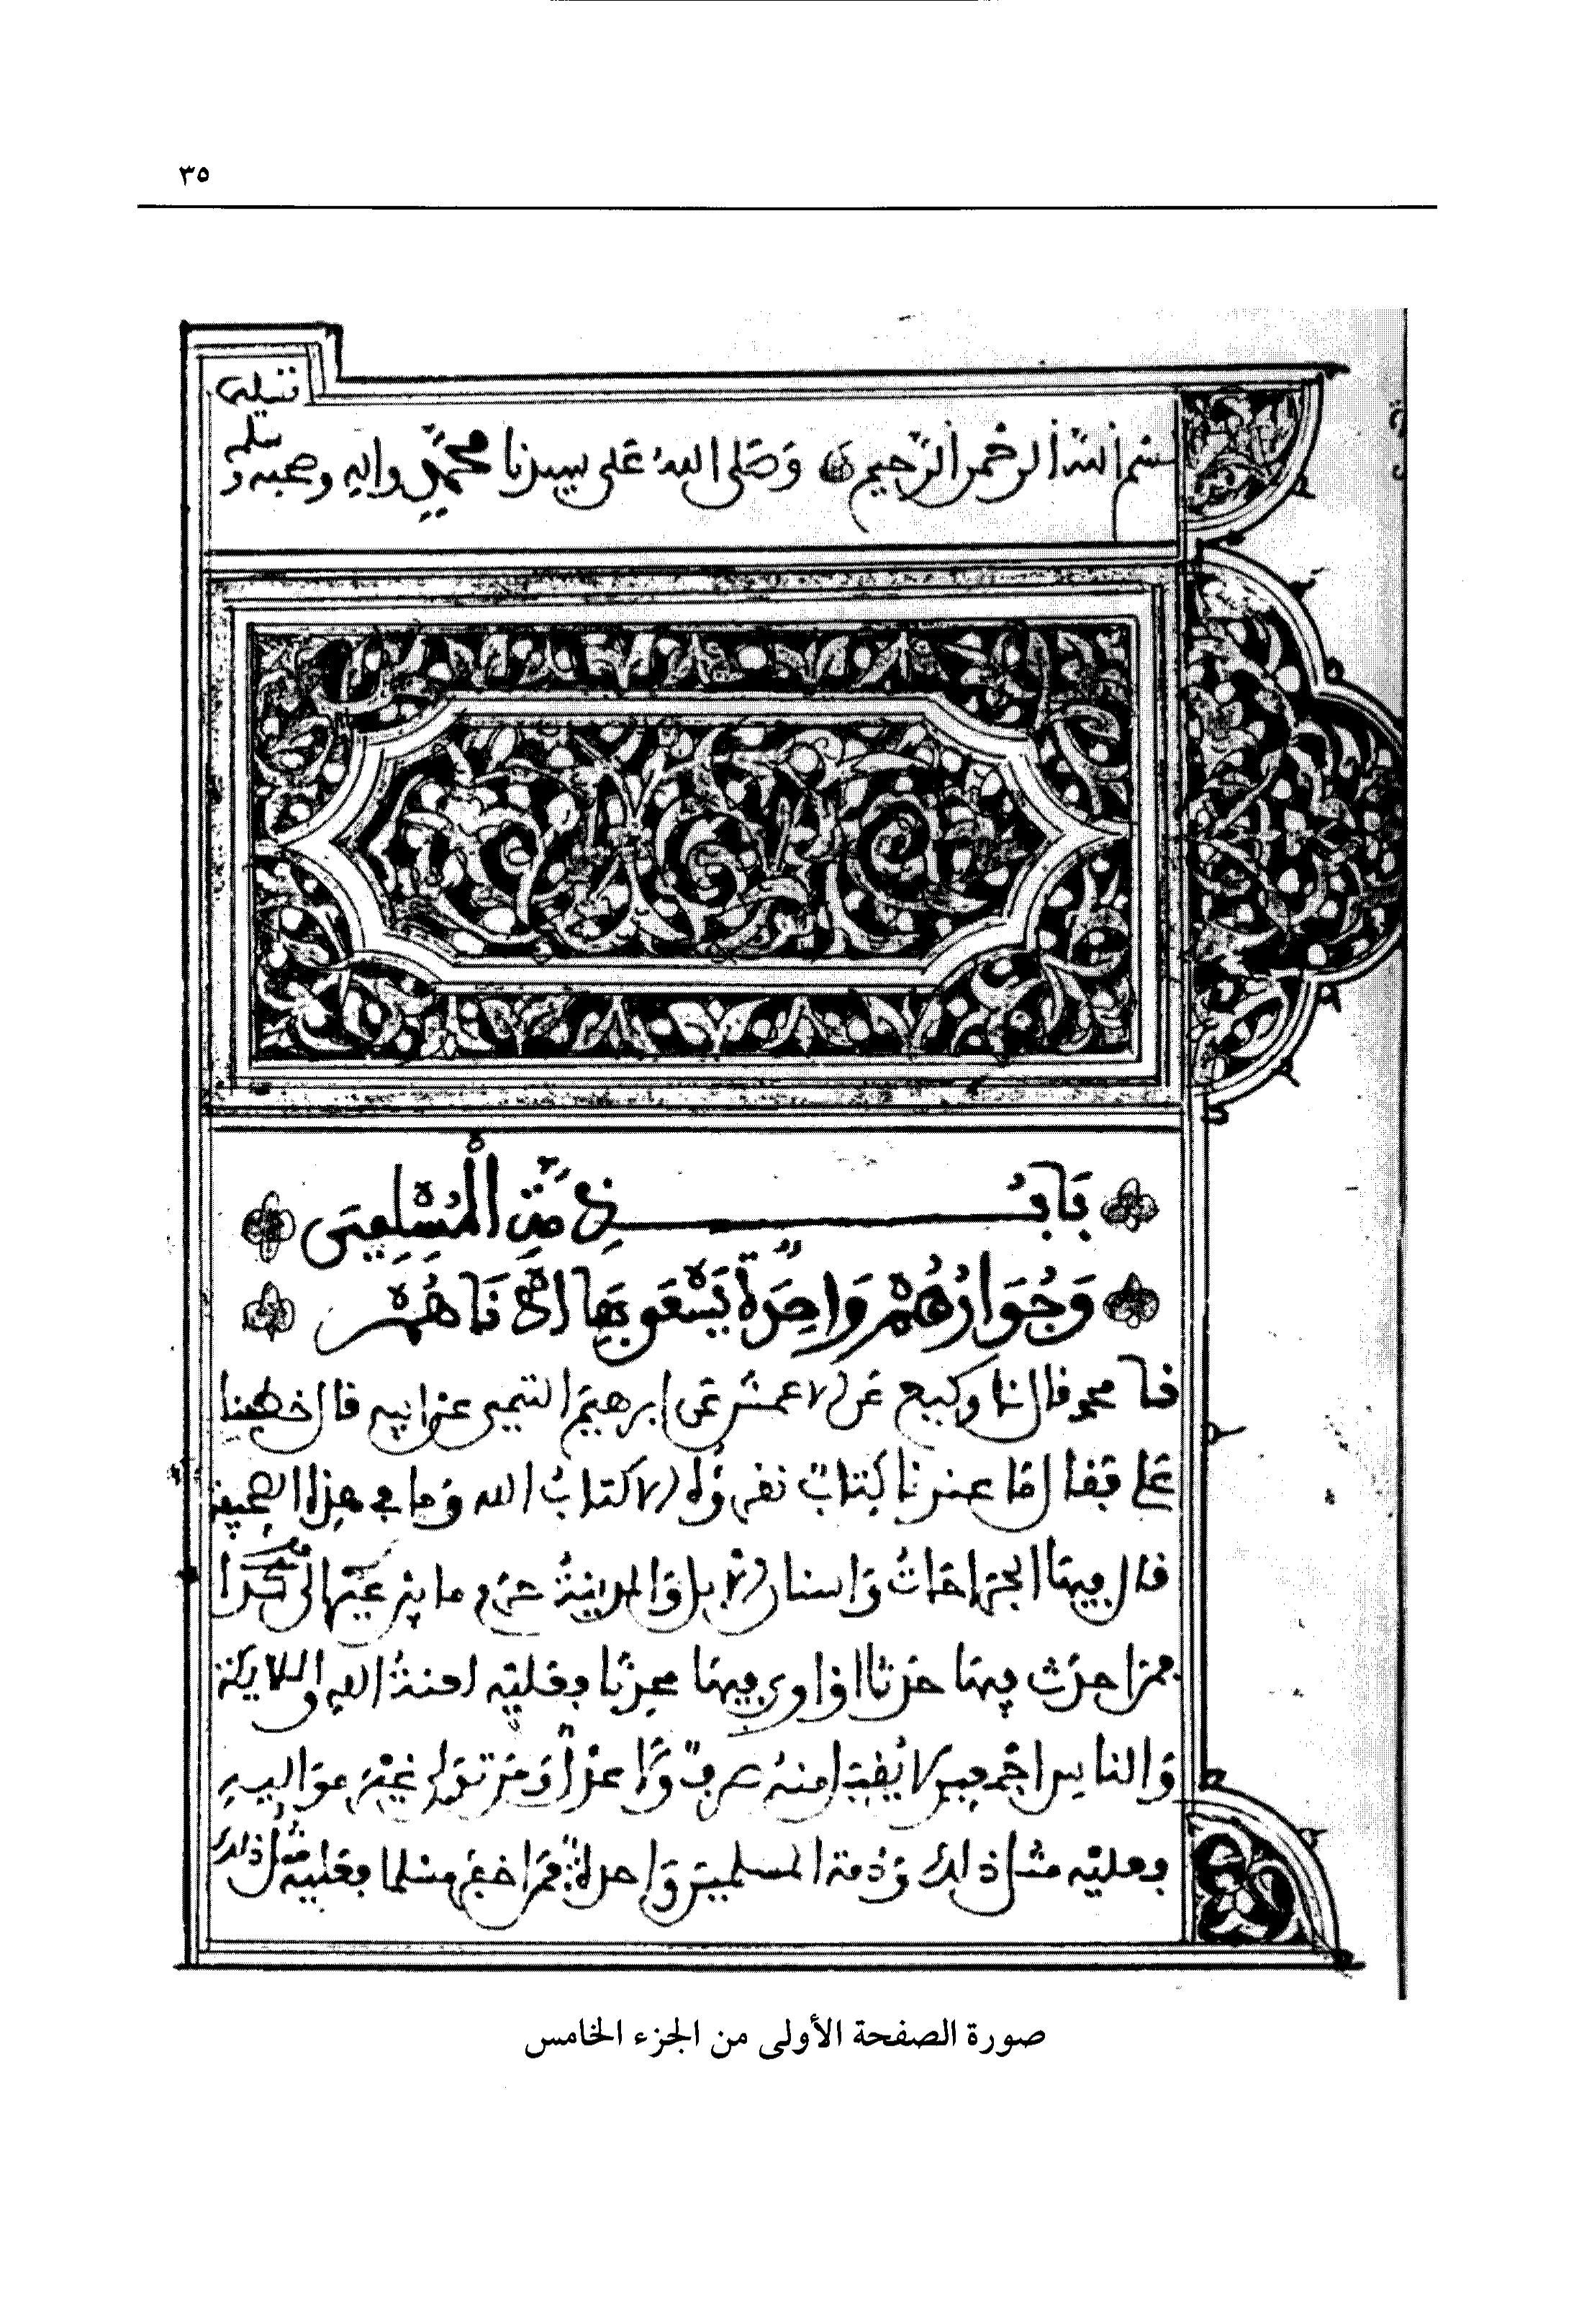 ٣٥
بسم الله الرحمن الرحيم وصلى الله على سيدنا محمد وآله وصحبه وسلم
باب ذمة المسلمين
وجوارهم واحدة يسعى بها أدناهم
نا محمد قال نا وكيع عن الاعمش عن ابرهيم التيمي عن ابيه قال خطبنا
علي فقال ما عندنا كتاب نقرؤه الا كتاب الله وما في هذه الصحيفة
قال فيها الجراحات واسنان الابل والمدينة حرم ما بين عير الى كذا
فمن احدث فيها حدثا او اوى فيها محدثا فعليه لعنة الله والملايكة
والناس اجمعين لا يقبل منه صرف ولا عدل ومن تولى غير مواليه
فعليه مثل ذلك وذمة المسلمين واحدة فمن اخفر مسلما فعليه مثل ذلك
صورة الصفحة الأولى من الجزء الخامس